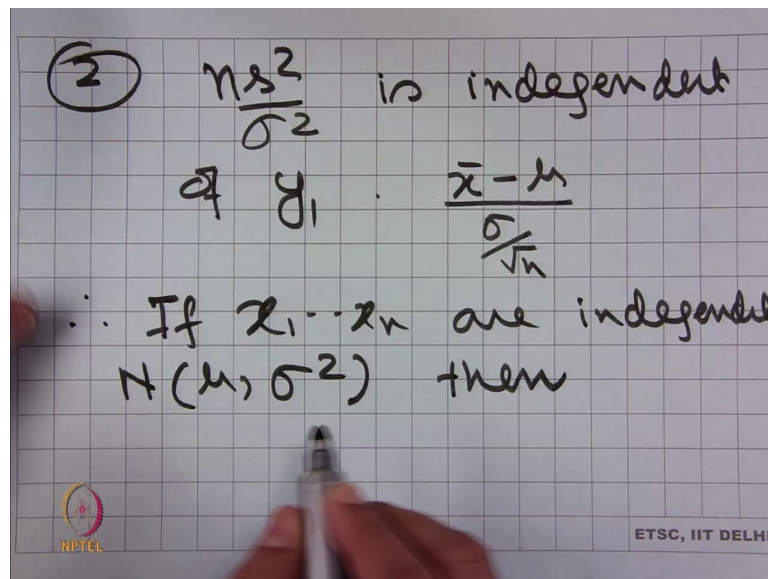 ② ns²/σ² is independent
of y₁ . (x̄ - μ)/(σ/√n)
∴ If x₁ ·· xₙ are independe
N(μ, σ²) then
NPTEL
ETSC, IIT DELHI